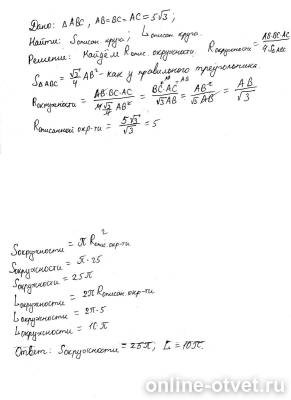 Дано: △ABC, AB=BC=AC=5√3;
Найти: Sописан. круга; Lописан. круга.
Решение: Найдём Rопис. окружности. Rокружности = AB·BC·AC / 4S△ABC
S△ABC = √3/4 AB² - как у правильного треугольника
Rокружности = AB·BC·AC / 4·√3/4 AB² = BC·AC / √3AB = AB² / √3AB = AB / √3
Rописанной окр-ти = 5√3 / √3 = 5
Sокружности = πR²опис. окр-ти
Sокружности = π·25
Sокружности = 25π
Lокружности = 2πRописан. окр-ти
Lокружности = 2π·5
Lокружности = 10π
Ответ: Sокружности = 25π; L = 10π.
online-otvet.ru